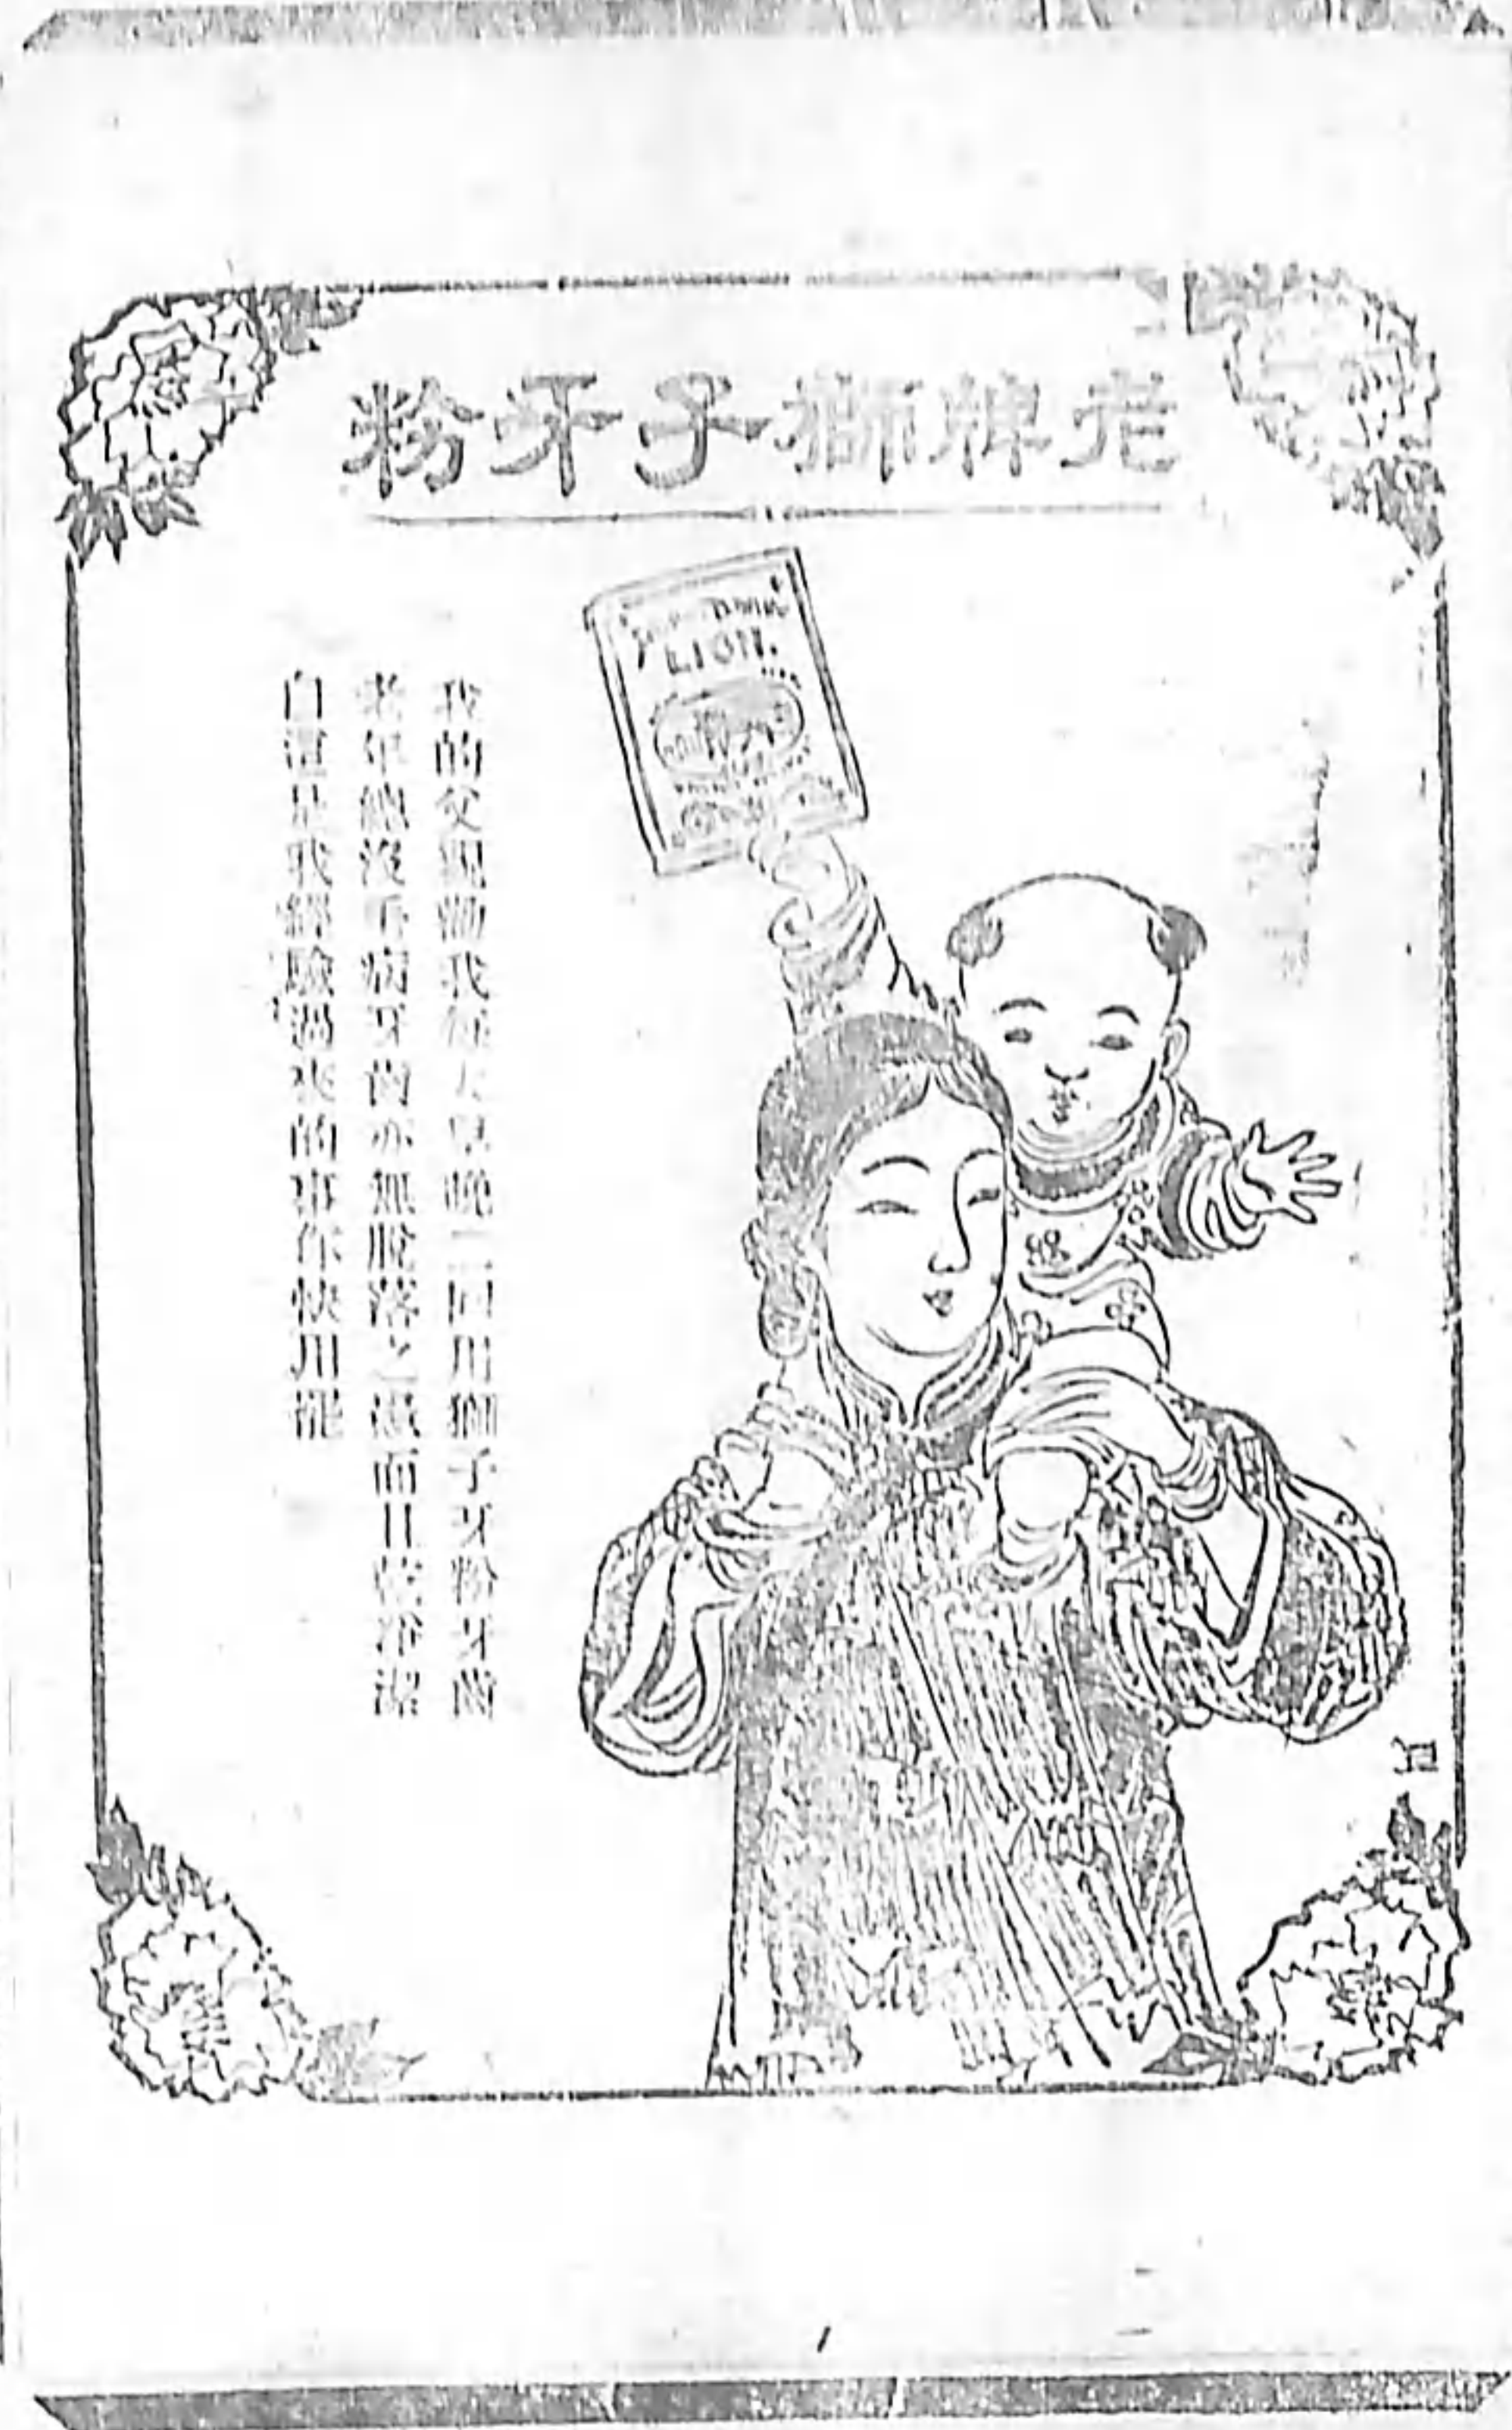 老牌獅子牙粉
LION.
我的父親勸我每天早晚二回用獅子牙粉牙齒
老年總沒毛病牙齒亦無脫落之患而且潔淨潔
白這是我經驗過來的事你快用罷